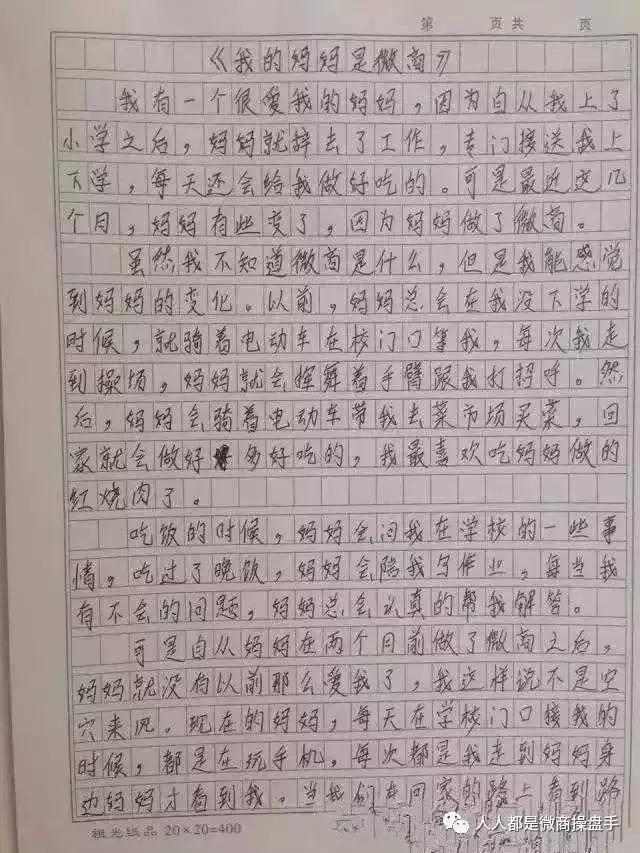 第 页 共 页
《我的妈妈是微商》
我有一个很爱我的妈妈，因为自从我上了
小学之后，妈妈就辞去了工作，专门接送我上
下学，每天还会给我做好吃的。可是最近这几
个月，妈妈有些变了，因为妈妈做了微商。
虽然我不知道微商是什么，但是我能感觉
到妈妈的变化。以前，妈妈总会在我没下学的
时候，就骑着电动车在校门口等我，每次我走
到操场，妈妈就会挥舞着手臂跟我打招呼。然
后，妈妈会骑着电动车带我去菜市场买菜，回
家就会做好多好吃的，我最喜欢吃妈妈做的
红烧肉了。
吃饭的时候，妈妈会问我在学校的一些事
情，吃过了晚饭，妈妈会陪我写作业，每当我
有不会的问题，妈妈总会认真的帮我解答。
可是自从妈妈在两个月前做了微商之后，
妈妈就没有以前那么爱我了，我这样说不是空
穴来风。现在的妈妈，每天在学校门口接我的
时候，都是在玩手机，每次都是我走到妈妈身
边妈妈才看到我。当我们在回家的路上看到路
祖光纸品 20×20=400
人人都是微商操盘手